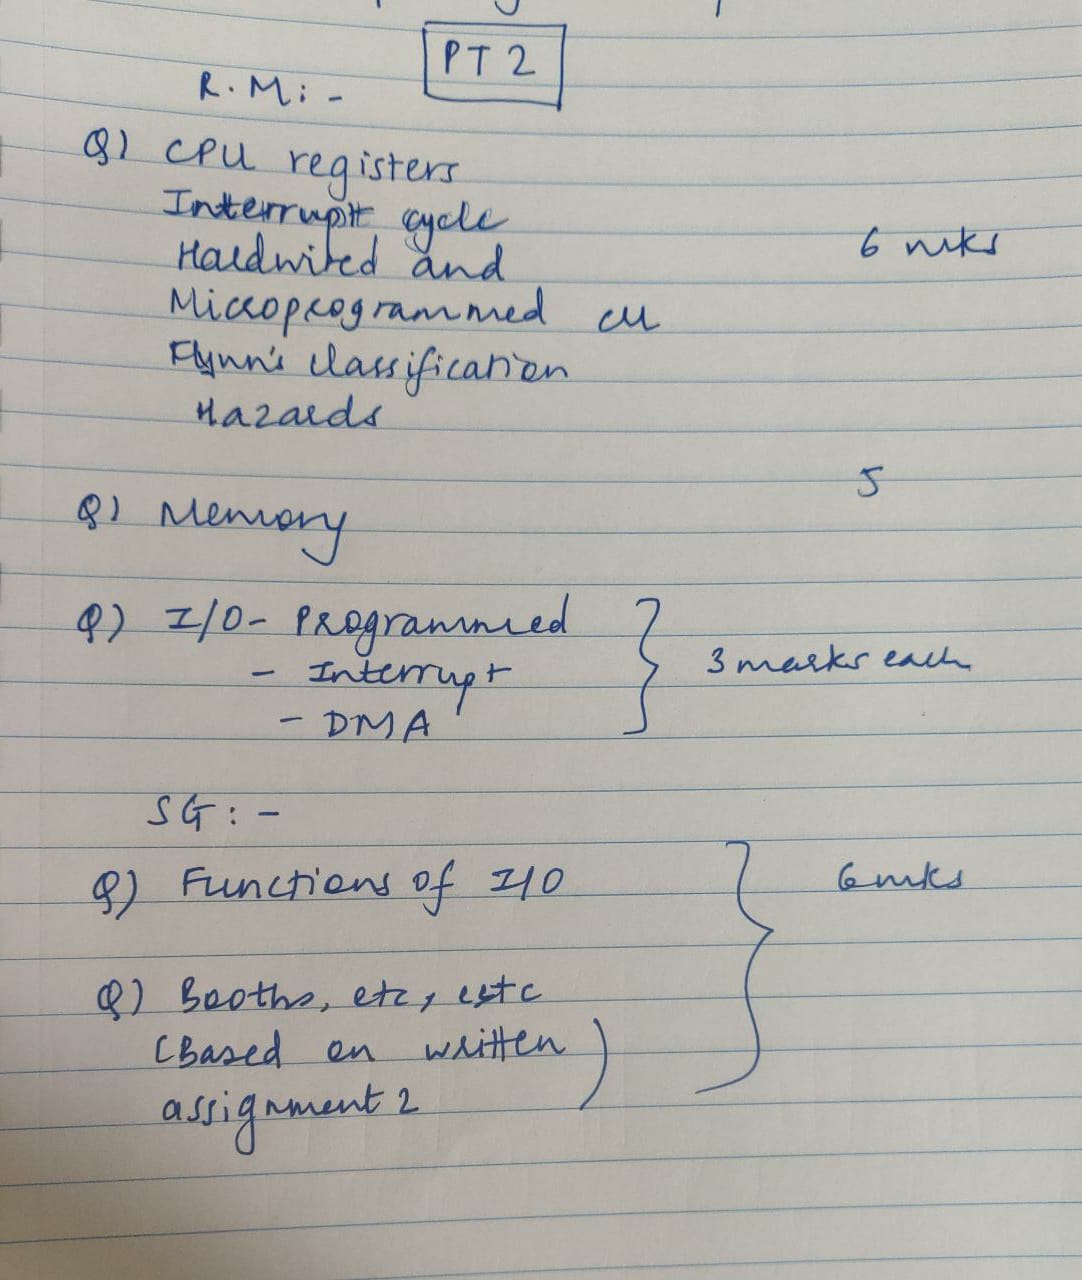 PT 2
R.M:-
Q) CPU registers
Interrupt cycle
Hardwired and
6 mks
Microprogrammed CU
Flynn's classification
Hazards
5
Q) Memory
Q) I/O- Programmed
- Interrupt
3 marks each
- DMA
SG:-
Q) Functions of I/O
6mks
Q) Booths, etc, estc
(Based on written
assignment 2)